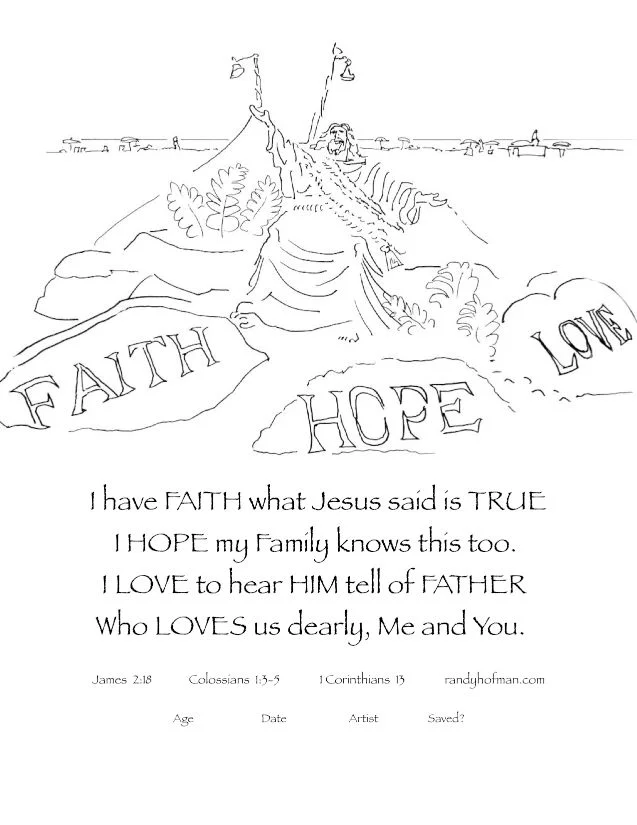 FAITH
HOPE
LOVE
I have FAITH what Jesus said is TRUE
I HOPE my Family knows this too.
I LOVE to hear HIM tell of FATHER
Who LOVES us dearly, Me and You.
James 2:18 Colossians 1:3-5 1 Corinthians 13 randyhofman.com
Age Date Artist Saved?